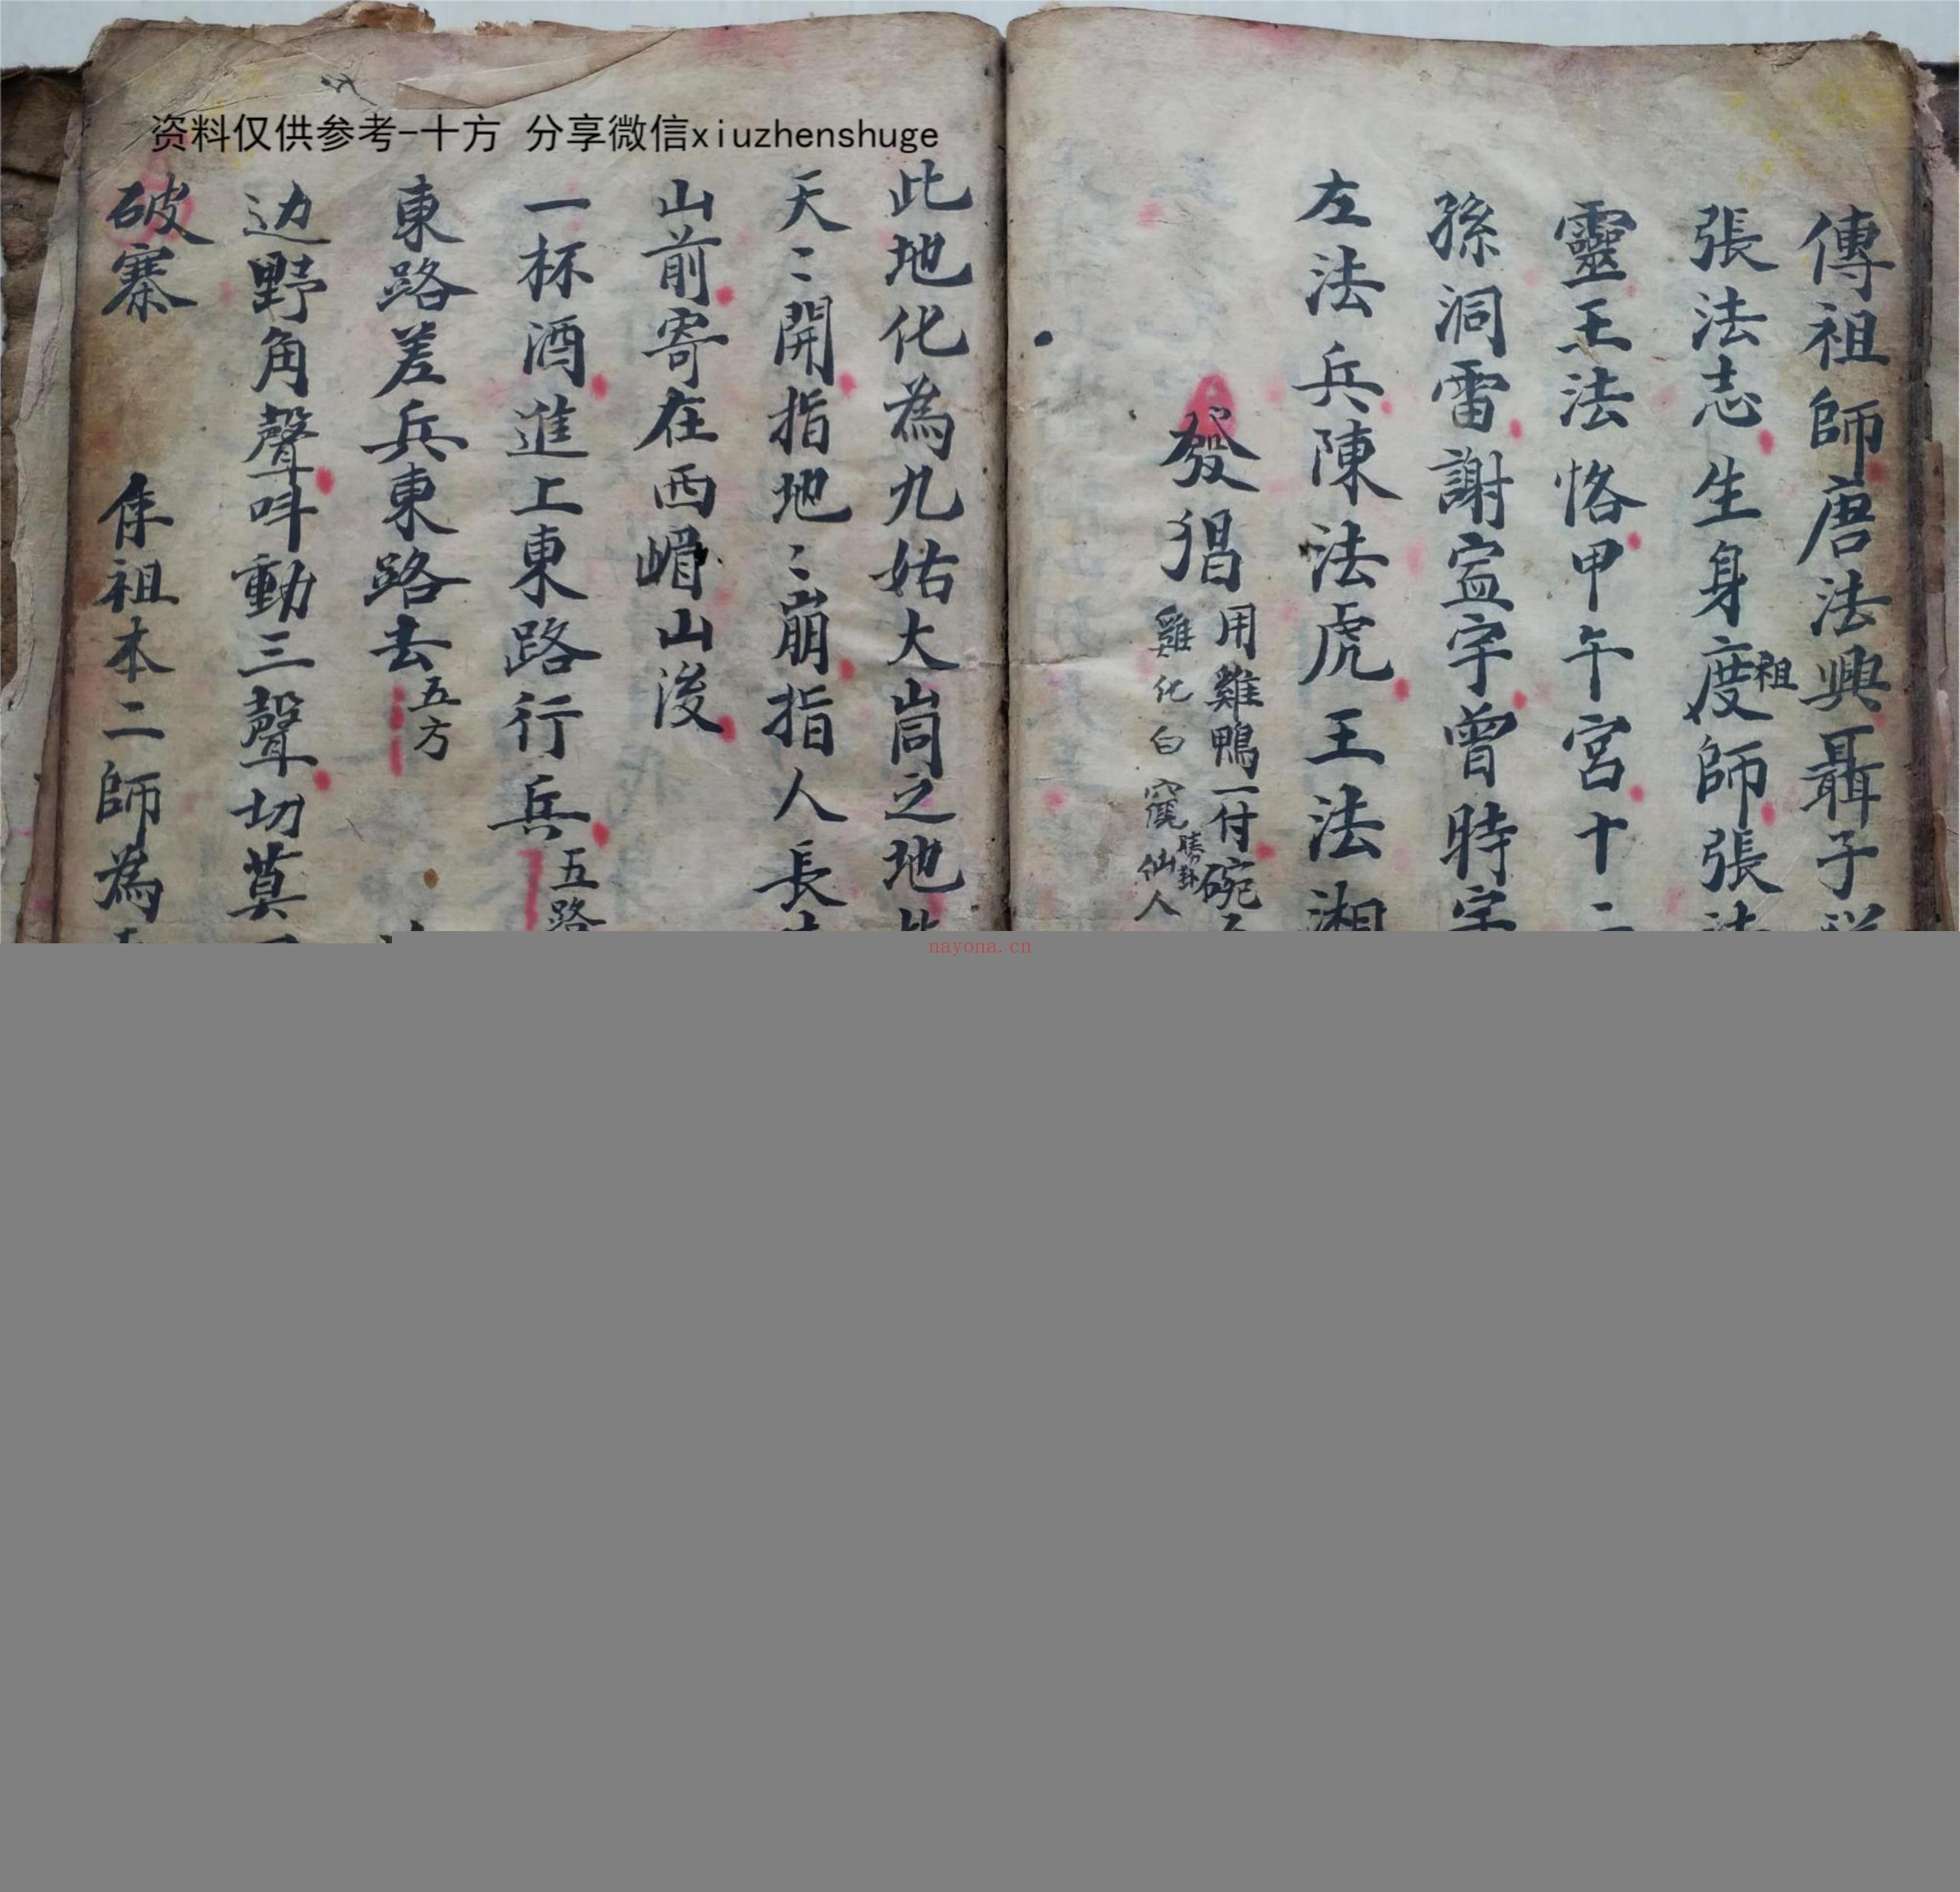 资料仅供参考-十方 分享微信xiuzhenshuge
傳祖師唐法興聶子
張法志生身度祖師張法
靈王法恪甲午宮十二
孫洞雷謝宣字曾時字
左法兵陳法虎王法湘
發猖
用雞鴨一付碗
雞化白
仙人
勝卦
此地化為九姑大峝之地
天〻開指地〻崩指人長
山前寄在西嵋山後
一杯酒進上東路行兵
五路
東路差兵東路去
五方
边野角聲呌動三聲切莫
破寨
隹祖本二師為
nayona.cn